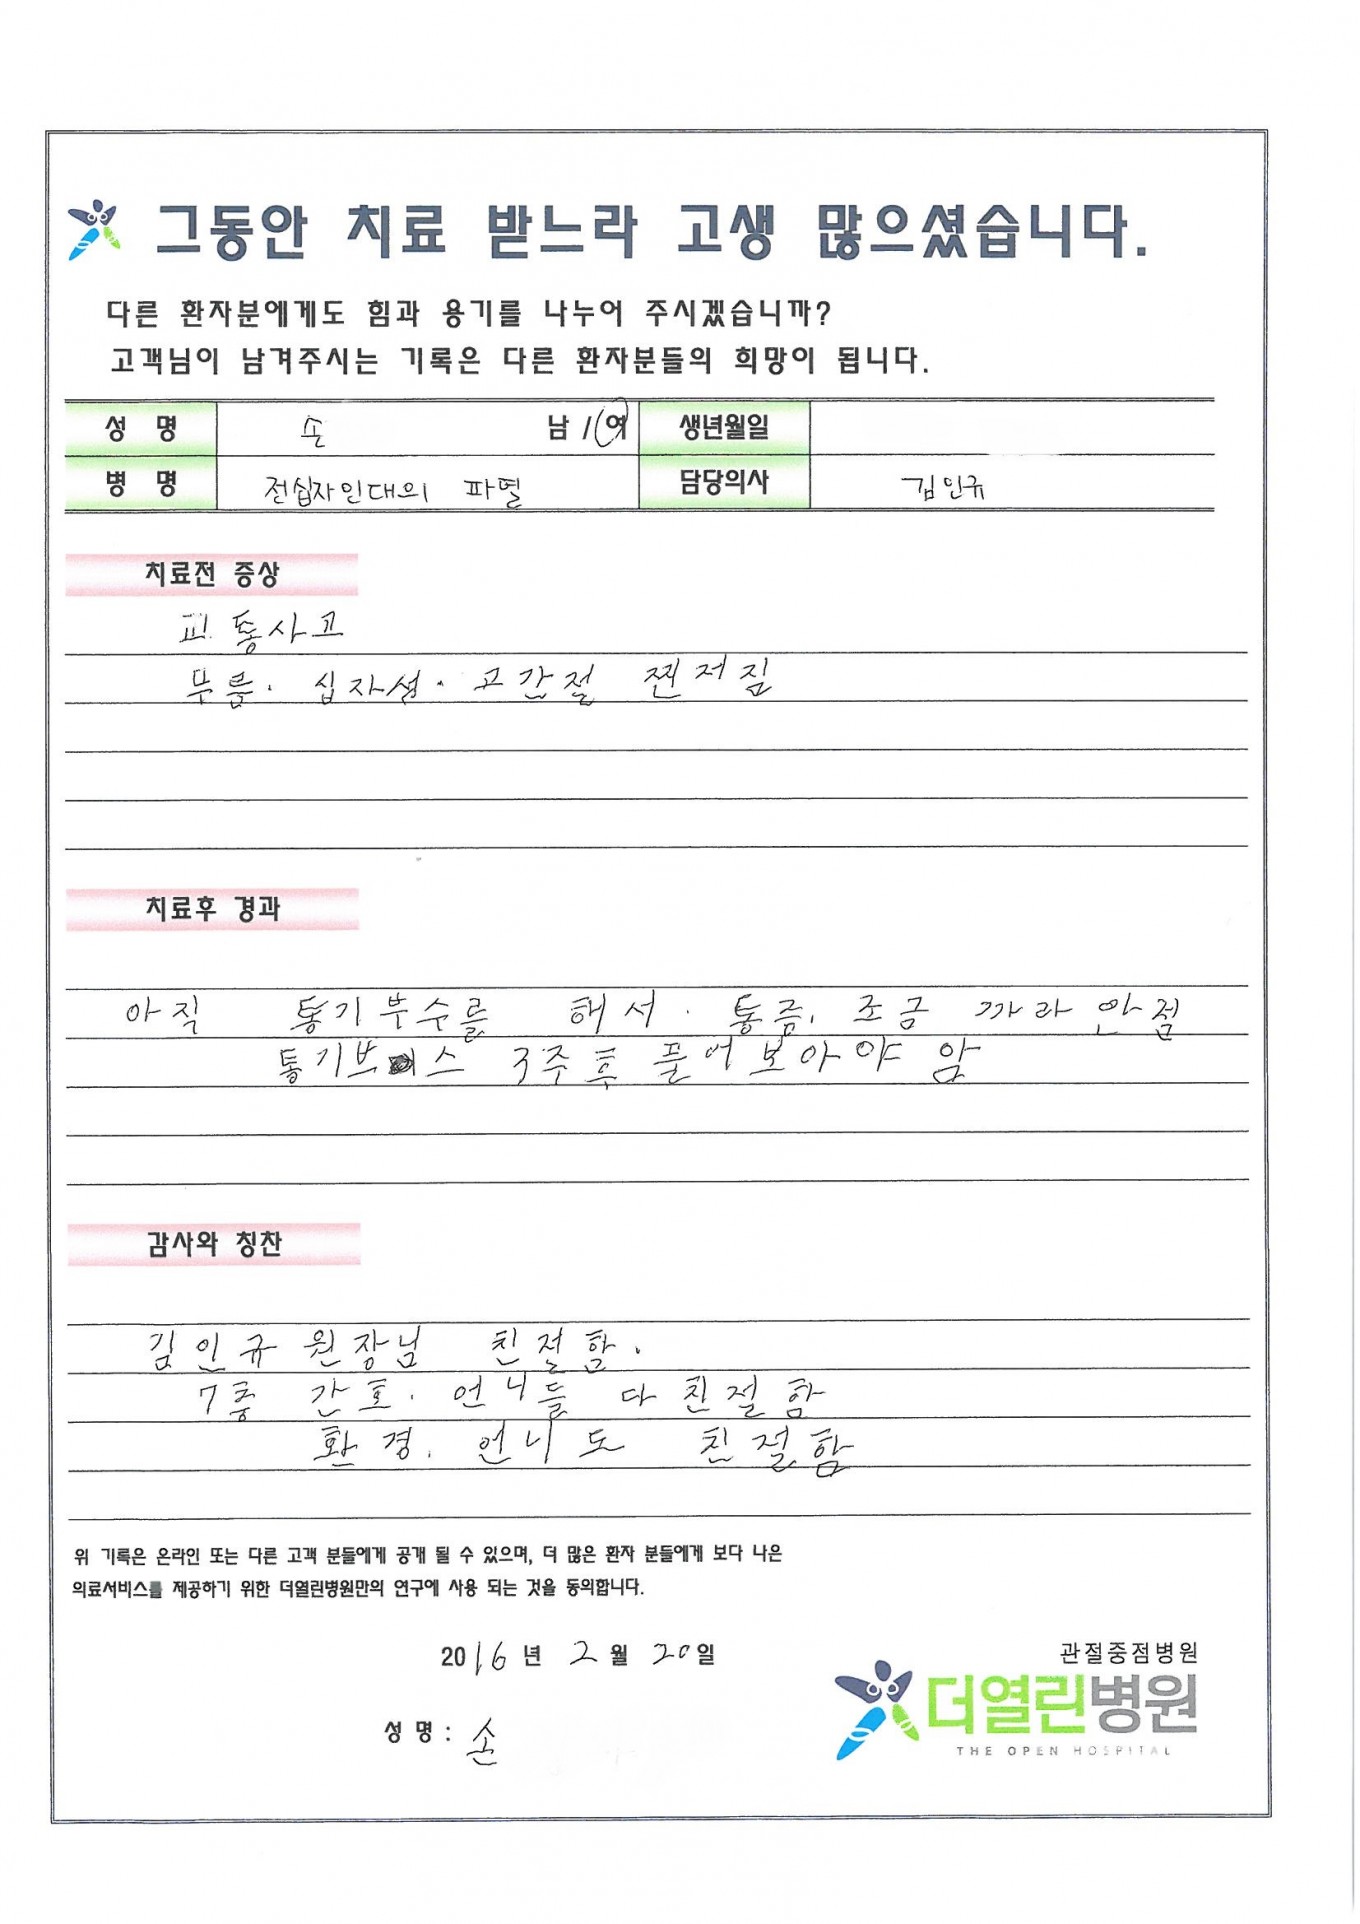 그동안 치료 받느라 고생 많으셨습니다.
다른 환자분에게도 힘과 용기를 나누어 주시겠습니까?
고객님이 남겨주시는 기록은 다른 환자분들의 희망이 됩니다.
성 명 손 남 / 여 생년월일
병 명 전십자인대의 파열 담당의사 김인규
치료전 증상
교통사고
무릎. 십자성. 고간절 찐저짐
치료후 경과
아직 통기부수를 해서. 통증. 조금 까라안점
통기브스 3주후 풀어보아야 암
감사와 칭찬
김인규 원장님 친절함.
7층 간호. 언니들 다 친절함
환경. 언니도 친절함
위 기록은 온라인 또는 다른 고객 분들에게 공개 될 수 있으며, 더 많은 환자 분들에게 보다 나은
의료서비스를 제공하기 위한 더열린병원만의 연구에 사용 되는 것을 동의합니다.
2016 년 2 월 20 일
성 명 : 손
관절중점병원
더열린병원
THE OPEN HOSPITAL